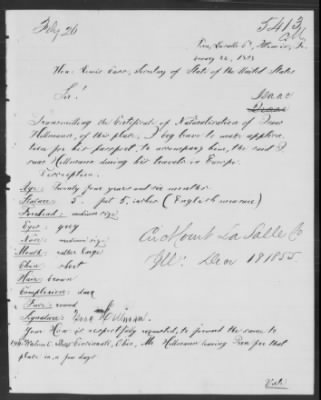 Feby 26
5413
Peru, La Salle Co, Illinois, Fe-
bruary 22, 1859
Hon: Lewis Cass, Secretary of State of the United States
Sir!
Isaac
Transmitting the Certificate of Naturalization of Isaac
Hellmann, of this place, I beg leave to make applica-
tion for his passport, to accompany him, the said I
saac Hellmann during his travels in Europe.
Description.
Age: Twenty four years and six months
Stature: 5. feet 5. inches (English measure)
Forehead: medium size
Eyes: grey
Nose: medium size
Mouth: rather large
Chin: short
Hair: brown
Complexion: dark
Face: round
Cir Court La Salle Co
Ill: Dec 18 1855
Signature: Isaac Hellmann.
Your Hon is respectfully requested, to forward the same to
Walnut Street Cincinnati, Ohio, Mr Hellmann leaving Peru for that
place in a few days